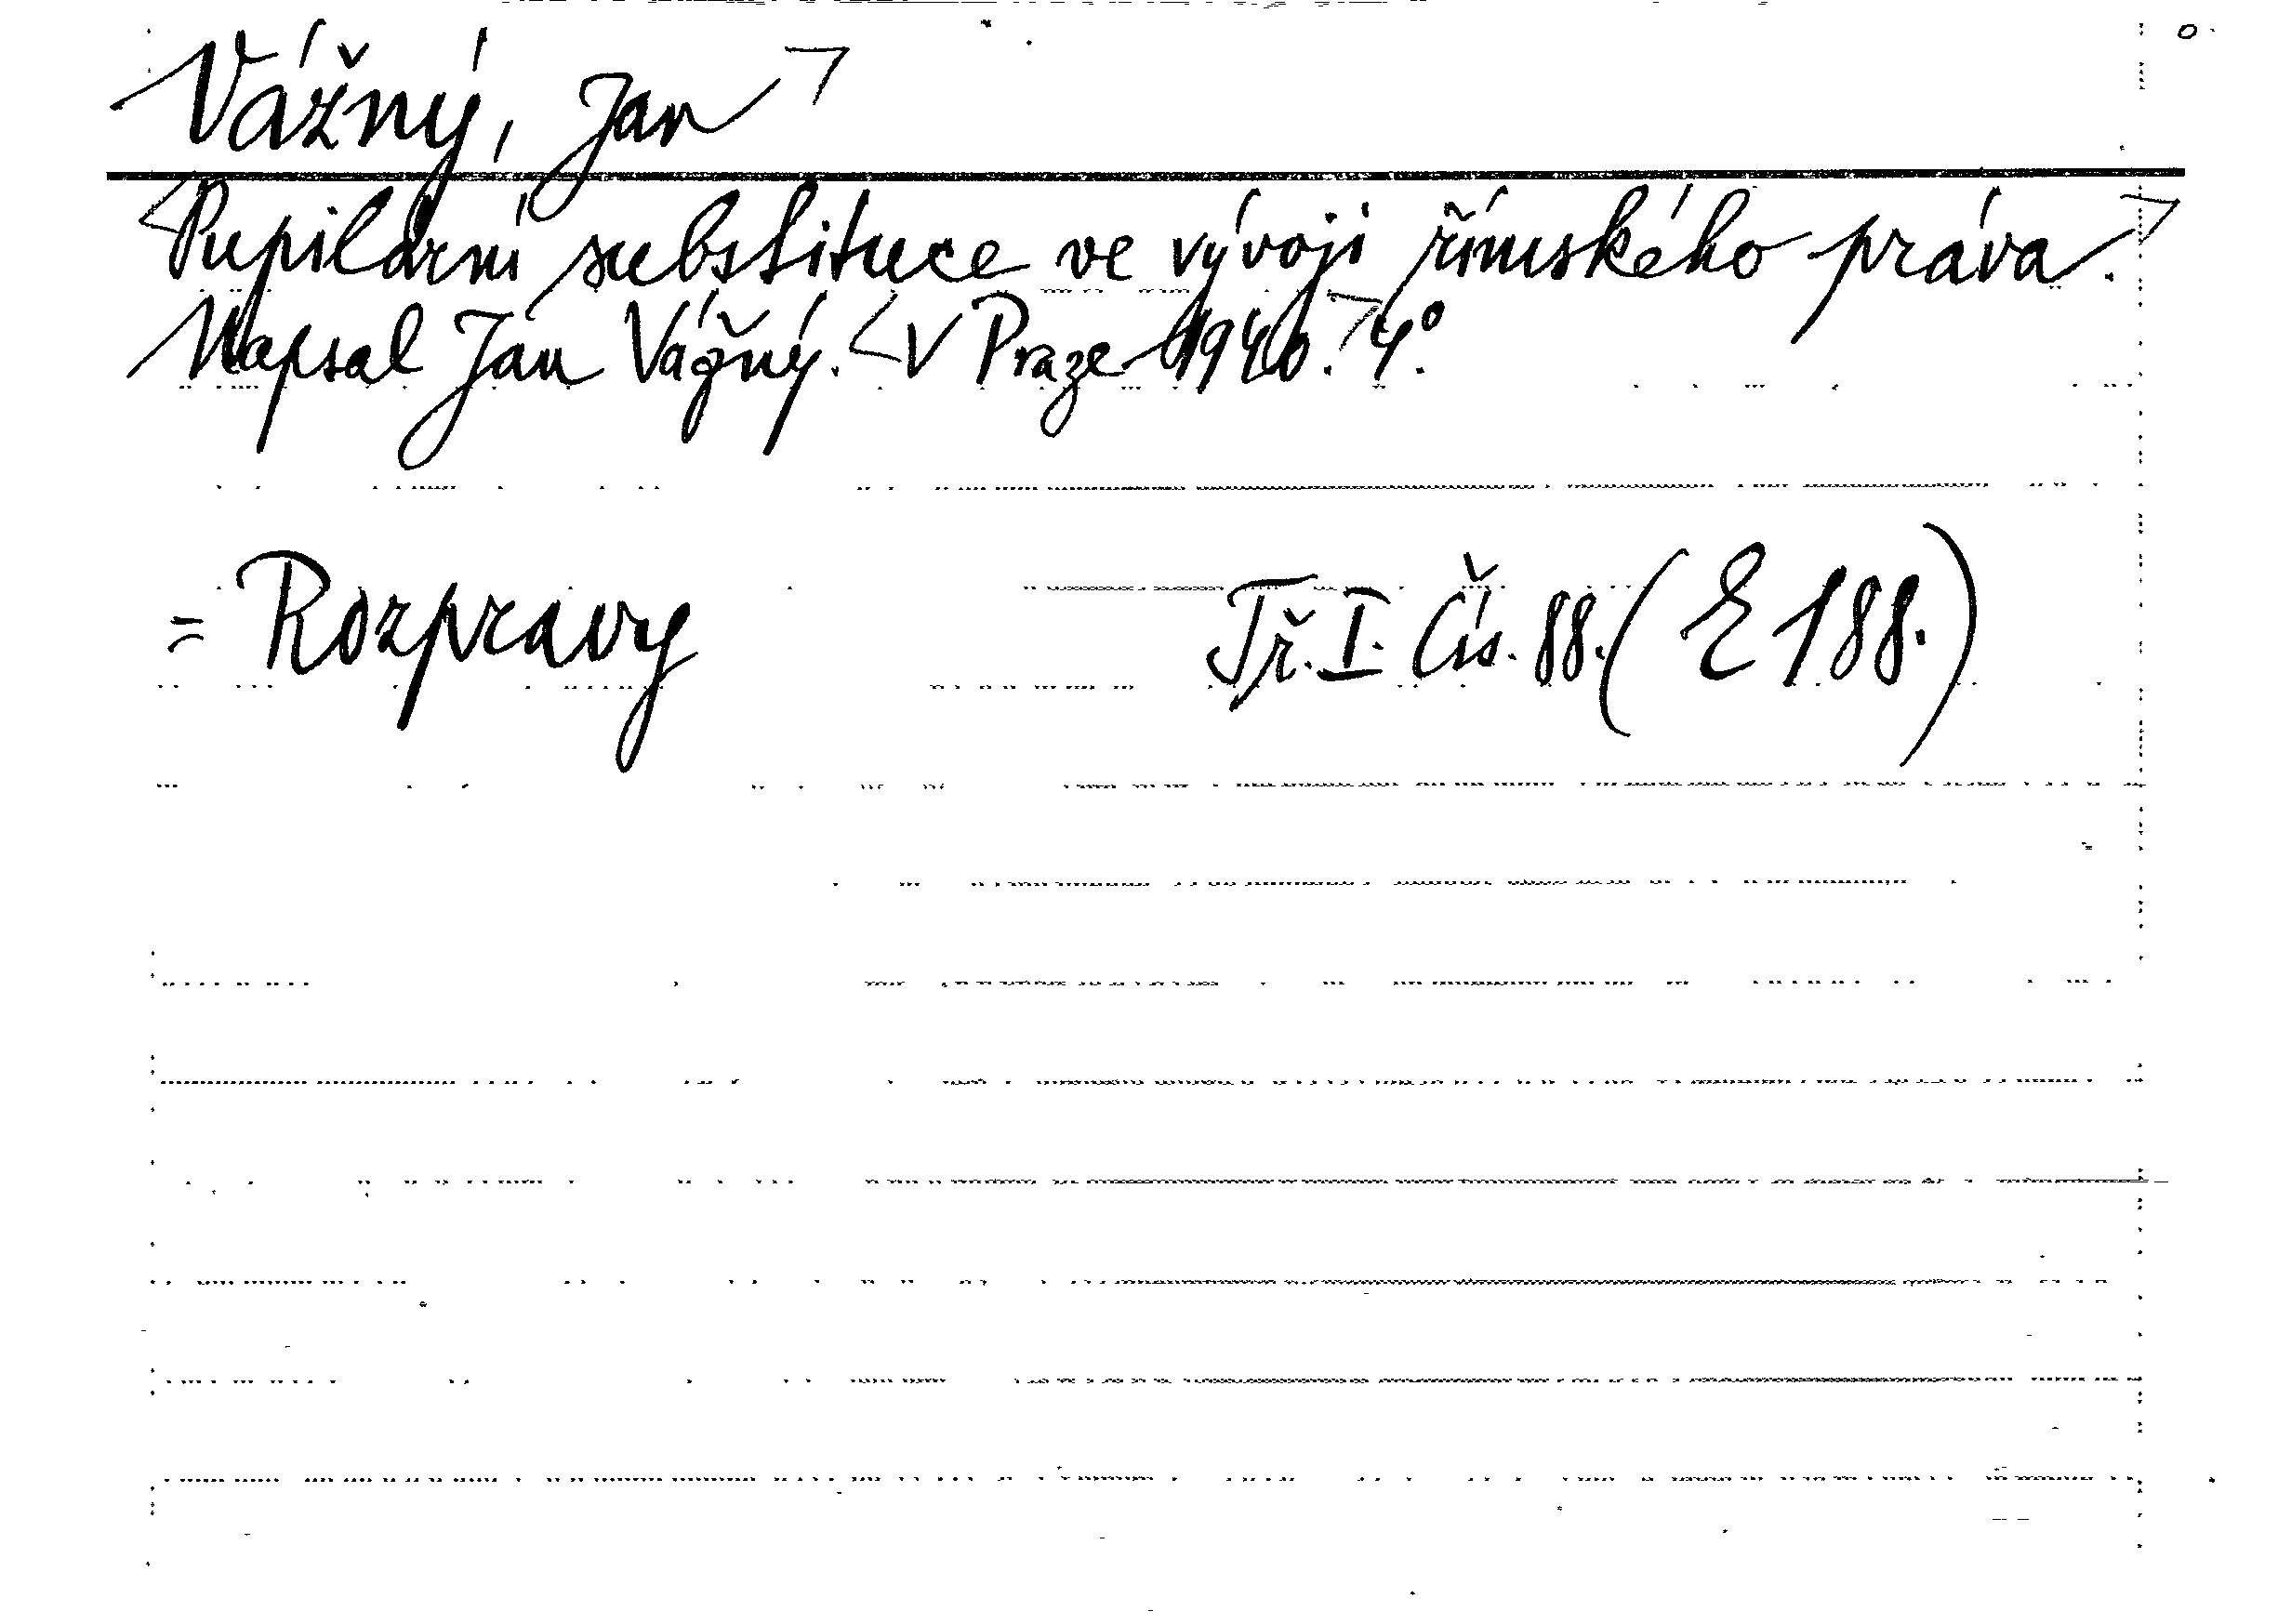 Vážný, Jan
Pupilární substituce ve vývoji římského práva.
Napsal Jan Vážný. V Praze 1940. 4°.
= Rozpravy Tř. I. Čís. 88. (E 188.)